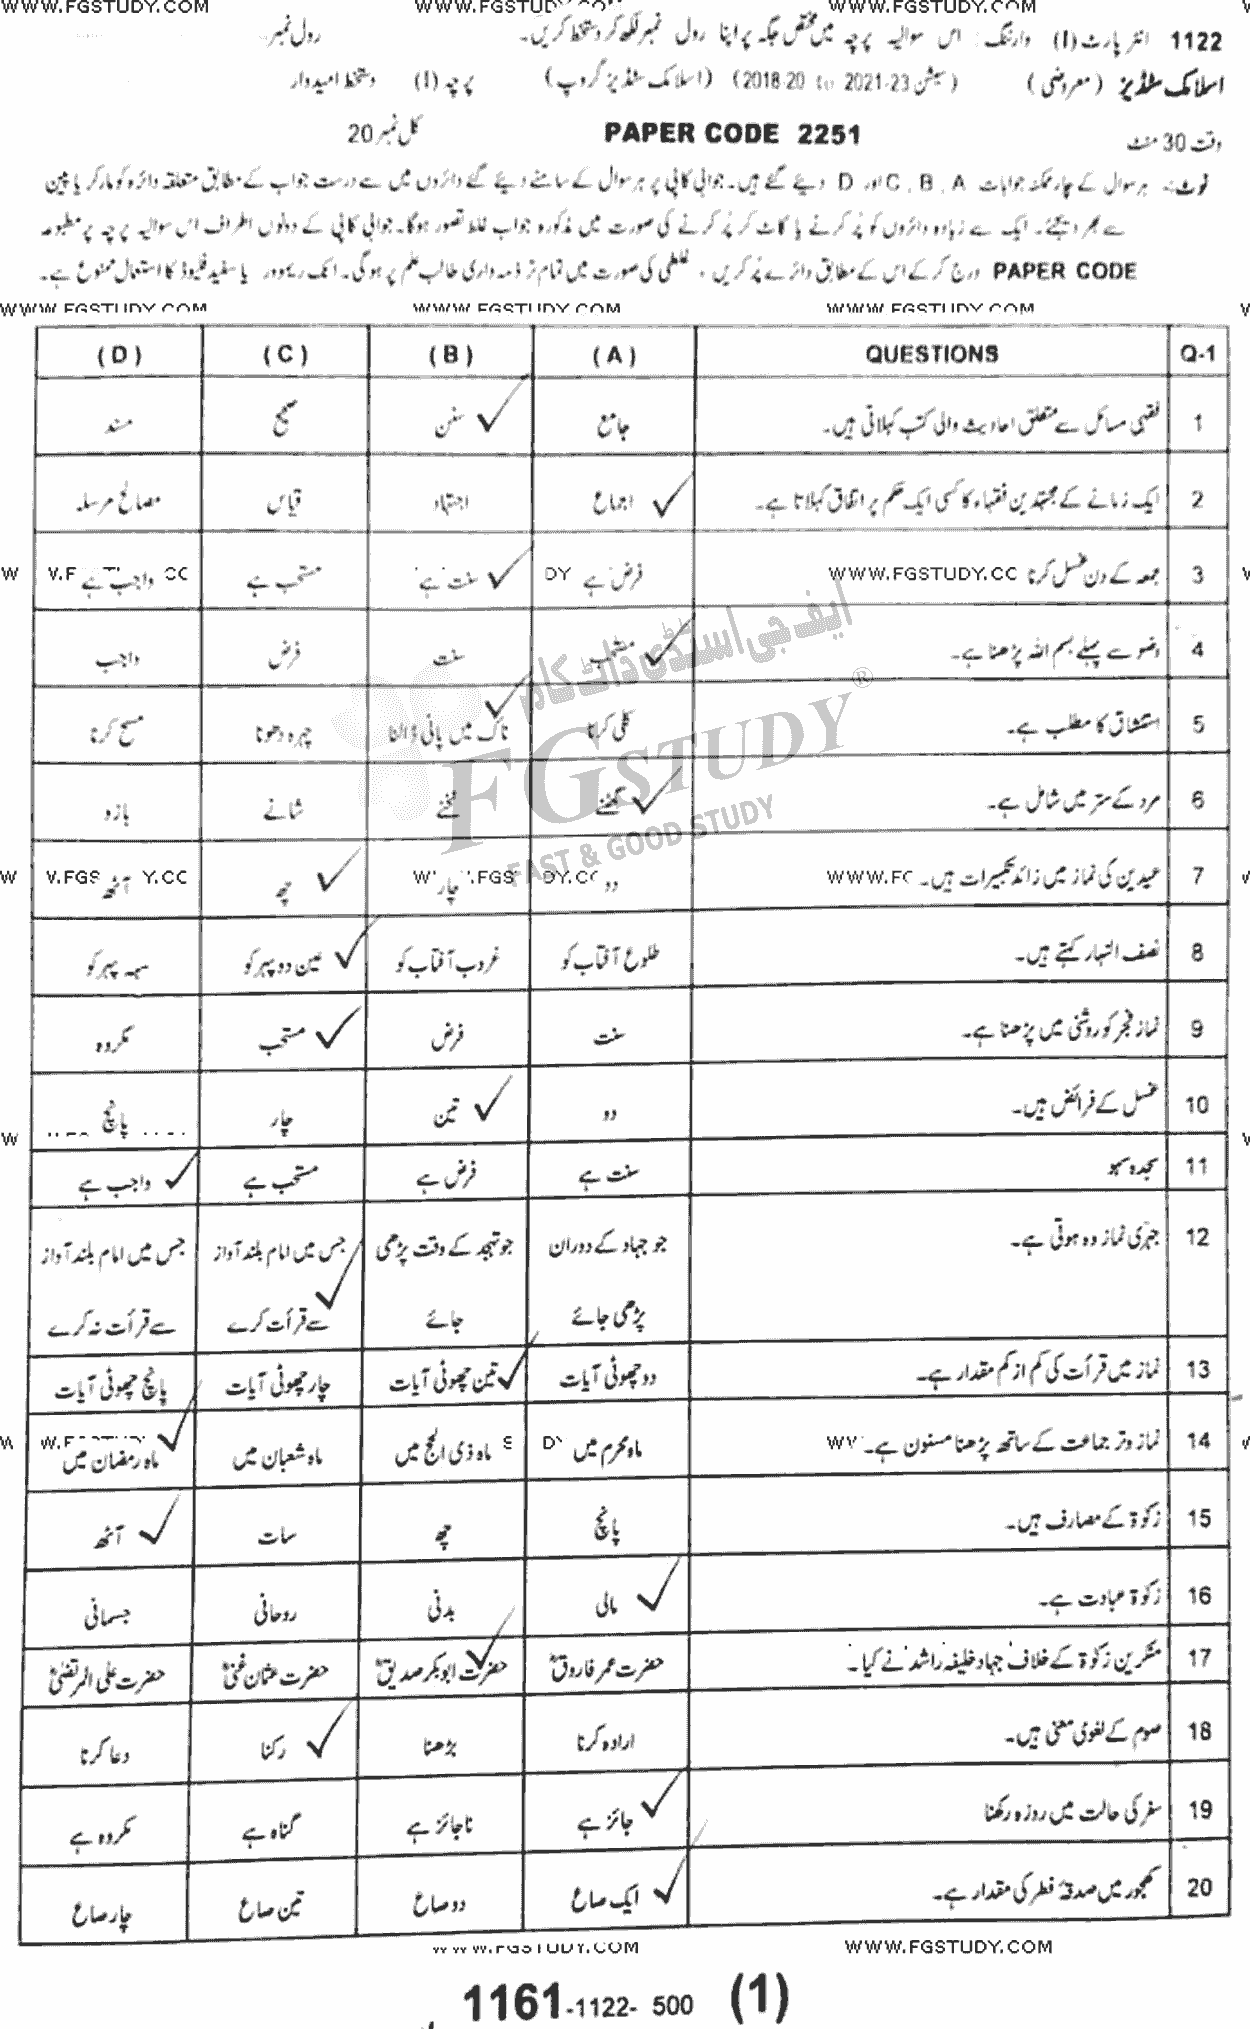 WWW.FGSTUDY.COM WWW.FGSTUDY.COM WWW.FGSTUDY.COM
1122 انٹر پارٹ (I) وارننگ : اس سوالیہ پرچہ میں مختص جگہ پر اپنا رول نمبر لکھ کر دستخط کریں۔ رول نمبر
اسلامک سٹڈیز (معروضی) (سیشن 2018-20 to 2021-23) (اسلامک سٹڈیز گروپ) پرچہ (I) دستخط امیدوار
وقت 30 منٹ PAPER CODE 2251 کل نمبر 20
نوٹ: ہر سوال کے چار ممکنہ جوابات A , B , C اور D دیئے گئے ہیں۔ جوابی کاپی پر ہر سوال کے سامنے دیئے گئے دائروں میں سے درست جواب کے مطابق متعلقہ دائرہ کو مارکر یا پین
سے بھر دیجئے۔ ایک سے زیادہ دائروں کو پُر کرنے یا کاٹ کر پُر کرنے کی صورت میں مذکورہ جواب غلط تصور ہوگا۔ جوابی کاپی کے دونوں اطراف اس سوالیہ پرچہ پر مطبوعہ
PAPER CODE درج کر کے اس کے مطابق دائرے پُر کریں ، غلطی کی صورت میں تمام تر ذمہ داری طالب علم پر ہوگی۔ انک ریموور یا سفید فلیوڈ کا استعمال ممنوع ہے۔
WWW.FGSTUDY.COM WWW.FGSTUDY.COM WWW.FGSTUDY.COM
Q-1 QUESTIONS (A) (B) (C) (D)
1 فقہی مسائل سے متعلق احادیث والی کتب کہلاتی ہیں۔ جامع سنن صحیح مسند
2 ایک زمانے کے مجتہدین فقہاء کا کسی ایک حکم پر اتفاق کہلاتا ہے۔ اجماع اجتہاد قیاس مصالح مرسلہ
3 جمعہ کے دن غسل کرنا فرض ہے سنت ہے مستحب ہے واجب ہے
4 وضو سے پہلے بسم اللہ پڑھنا ہے۔ مستحب سنت فرض واجب
5 استنشاق کا مطلب ہے۔ کلی کرنا ناک میں پانی ڈالنا چہرہ دھونا مسح کرنا
6 مرد کے ستر میں شامل ہے۔ گھٹنے ٹخنے شانے بازو
7 عیدین کی نماز میں زائد تکبیرات ہیں۔ دو چار چھ آٹھ
8 نصف النہار کہتے ہیں۔ طلوع آفتاب کو غروب آفتاب کو عین دوپہر کو سہ پہر کو
9 نماز فجر کو روشنی میں پڑھنا ہے۔ سنت فرض مستحب مکروہ
10 غسل کے فرائض ہیں۔ دو تین چار پانچ
11 سجدہ سہو سنت ہے فرض ہے مستحب ہے واجب ہے
12 جہری نماز وہ ہوتی ہے۔ جو جہاد کے دوران جو تہجد کے وقت پڑھی جس میں امام بلند آواز جس میں امام بلند آواز
پڑھی جائے جائے سے قرأت کرے سے قرأت نہ کرے
13 نماز میں قرأت کی کم از کم مقدار ہے۔ دو چھوٹی آیات تین چھوٹی آیات چار چھوٹی آیات پانچ چھوٹی آیات
14 نماز وتر جماعت کے ساتھ پڑھنا مسنون ہے۔ ماہ محرم میں ماہ ذی الحج میں ماہ شعبان میں ماہ رمضان میں
15 زکوٰۃ کے مصارف ہیں۔ پانچ چھ سات آٹھ
16 زکوٰۃ عبادت ہے۔ مالی بدنی روحانی جسمانی
17 منکرین زکوٰۃ کے خلاف جہاد خلیفہ راشد نے کیا۔ حضرت عمر فاروقؓ حضرت ابوبکر صدیقؓ حضرت عثمان غنیؓ حضرت علی المرتضیٰؓ
18 صوم کے لغوی معنی ہیں۔ ارادہ کرنا بڑھنا رکنا دعا کرنا
19 سفر کی حالت میں روزہ رکھنا جائز ہے ناجائز ہے گناہ ہے مکروہ ہے
20 کھجور میں صدقہ فطر کی مقدار ہے۔ ایک صاع دو صاع تین صاع چار صاع
ایف جی اسٹڈی ڈاٹ کام
FGSTUDY®
FAST & GOOD STUDY
WWW.FGSTUDY.COM WWW.FGSTUDY.COM
1161-1122- 500 (1)